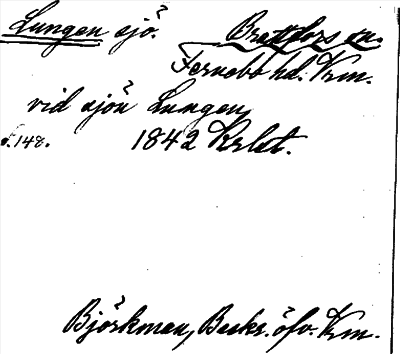 Lungen sjö. Brattfors sn.
Fernebo hd. Krm.
vid sjön Lungen
s. 148. 1842 Krlst.
Björkman, Beskr. öfv. Krm.